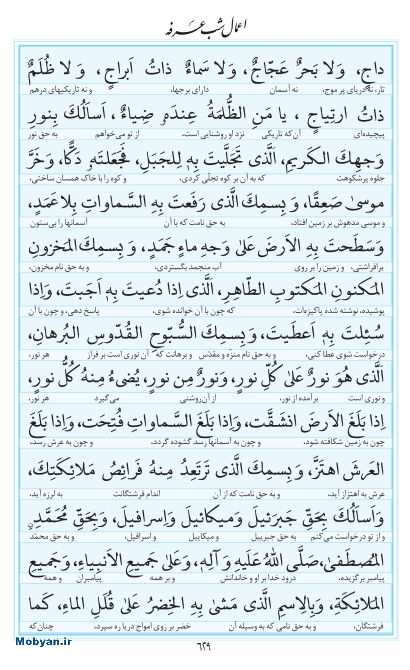 اعمال شب عرفه
داجٍ، وَلا بَحرٌ عَجّاجٌ، وَلا سَماءٌ ذاتُ اَبراجٍ، وَ لا ظُلَمٌ
تار، نه دریای پر موج، نه آسمان دارای برجها، و نه تاریکیهای درهم
ذاتُ ارتِیاجٍ ، یا مَنِ الظُّلمَةُ عِندَهُ ضِیاءٌ ، اَسأَلُكَ بِنورِ
پیچیده‌ای آن که تاریکی نزد او روشنایی است، از تو می‌خواهم به حق نور
وَجهِكَ الکَریمِ، اَلَّذی تَجَلَّیتَ بِهِ لِلجَبَلِ، فَجَعَلتَهُ دَکًّا، وَخَرَّ
جلوه پرشکوهت که به آن بر کوه تجلی کردی، و کوه را با خاک همسان ساختی،
موسیٰ صَعِقًا، وَ بِسمِكَ الَّذی رَفَعتَ بِهِ السَّماواتِ بِلاعَمَدٍ،
و موسی مدهوش بر زمین افتاد، به حق نامت که با آن آسمانها را بی‌ستون
وَسَطَحتَ بِهِ الاَرضَ عَلیٰ وَجهِ ماءٍ جَمَدٍ، وَ بِسمِكَ المَخزونِ
برافراشتی، و زمین را بر روی آب منجمد بگستردی، و به حق نام مخزون،
المَکنونِ المَکتوبِ الطّاهِرِ، اَلَّذی اِذا دُعیتَ بِهِ اَجَبتَ، وَاِذا
پوشیده، نوشته شده پاکیزه‌ات، که چون با آن خوانده شوی، پاسخ دهی، و چون با آن
سُئِلتَ بِهِ اَعطَیتَ، وَ بِسمِكَ السُّبّوحِ القُدّوسِ البُرهانِ،
درخواست شوی عطا کنی، و به حق نام منزه و مقدّس و برهانت که آن نوری است بر فراز هر نور،
اَلَّذی هُوَ نورٌ عَلیٰ کُلِّ نورٍ، وَنورٌ مِن نورٍ، یُضیءُ مِنهُ کُلُّ نورٍ،
و نوری است برآمده از نور، که از آن روشنی می‌گیرد هر نور،
اِذا بَلَغَ الاَرضَ انشَقَّت، وَاِذا بَلَغَ السَّماواتِ فُتِحَت، وَاِذا بَلَغَ
چون به زمین رسد شکافته شود، و چون به آسمانها رسد گشوده گردد، و چون به عرش رسد،
العَرشَ اهتَزَّ، وَ بِسمِكَ الَّذی تَرتَعِدُ مِنهُ فَرائِصُ مَلائِکَتِكَ،
عرش به اهتزاز آید، و به حق نامت که از آن اندام فرشتگانت به لرزه آید،
وَاَسأَلُكَ بِحَقِّ جَبرَئیلَ وَمیکائیلَ وَاِسرافیلَ، وَبِحَقِّ مُحَمَّدٍ
و از تو درخواست می‌کنم به حق جبرییل و میکاییل و اسرافیل، و به حق محمّد
المُصطَفیٰ، صَلَّی اللهُ عَلَیهِ وَ آلِهِ، وَعَلیٰ جَمیعِ الاَنبیاءِ، وَجَمیعِ
پیامبر برگزیده، درود خدا بر او و خاندانش و بر همه پیامبران و همه
المَلائِکَةِ، وَبِالاِسمِ الَّذی مَشیٰ بِهِ الخِضرُ عَلیٰ قُلَلِ الماءِ، کَما
فرشتگان، و به حق نامی که به وسیله آن خضر بر روی امواج دریا ره سپرد، چنان که
۶۲۹
Mobyan.ir